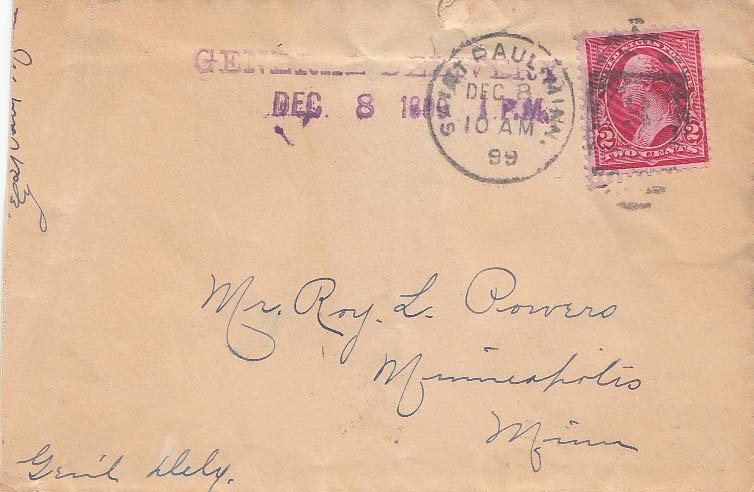 GENERAL DELIVERY
DEC 8 1899 1 P.M.
SAINT PAUL, MINN.
DEC 8
10 AM
99
UNITED STATES POSTAGE
2 2
TWO CENTS
Mr. Roy. L. Powers
Minneapolis
Minn
Gen'l Dely.